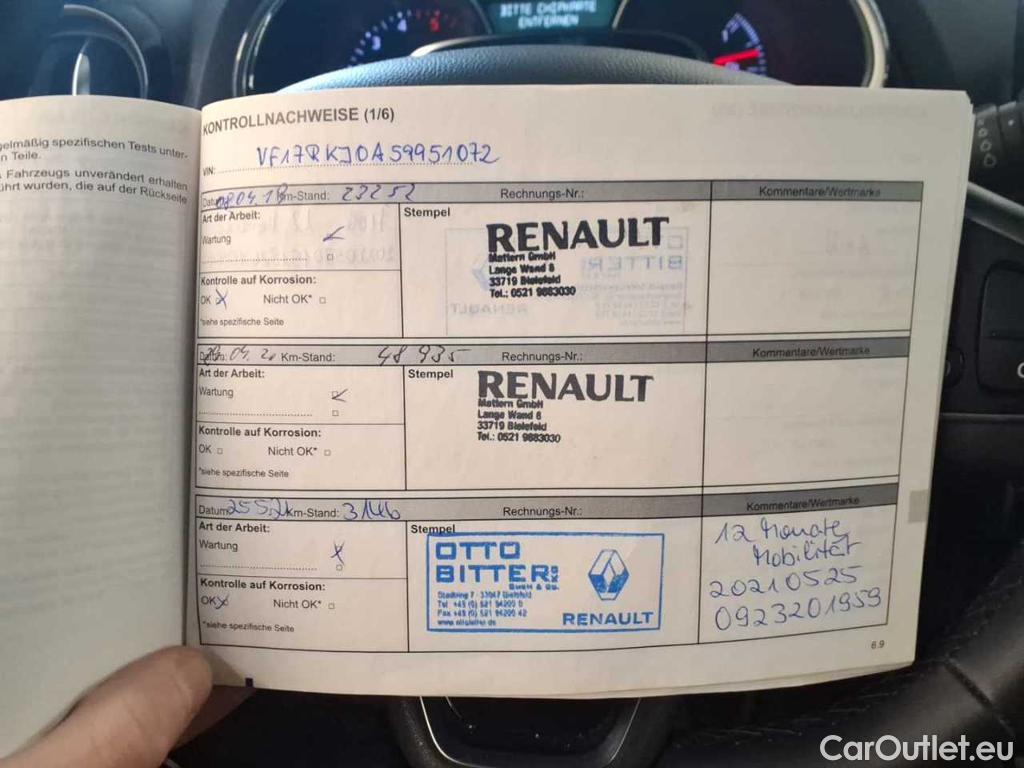 BITTE CHIPKARTE
ENTFERNEN
3 4 5
gelmäßig spezifischen Tests unter-
n Teile.
Fahrzeugs unverändert erhalten
ührt wurden, die auf der Rückseite
KONTROLLNACHWEISE (1/6)
VIN: VF17RKJ0A59951072
Datum: 08.04.19 Km-Stand: 23252 Rechnungs-Nr.: Kommentare/Wertmarke
Art der Arbeit: Stempel
Wartung
Kontrolle auf Korrosion:
OK X Nicht OK* □
*siehe spezifische Seite
RENAULT
Mattern GmbH
Lange Wand 6
33719 Bielefeld
Tel.: 0521 9883030
04.20 Km-Stand: 48935 Rechnungs-Nr.: Kommentare/Wertmarke
Art der Arbeit: Stempel
Wartung
Kontrolle auf Korrosion:
OK □ Nicht OK* □
*siehe spezifische Seite
RENAULT
Mattern GmbH
Lange Wand 6
33719 Bielefeld
Tel.: 0521 9883030
Datum 25.5.21 Km-Stand: Rechnungs-Nr.: Kommentare/Wertmarke
Art der Arbeit: Stempel
Wartung X
Kontrolle auf Korrosion:
OK X Nicht OK* □
*siehe spezifische Seite
OTTO
BITTER
GmbH & Co. KG
Stadtring 7 · 33647 Bielefeld
Tel +49 (0) 521 94200 0
Fax +49 (0) 521 94200 42
RENAULT
12 Monate
Mobilität
20210525
0923201959
6.9
CarOutlet.eu